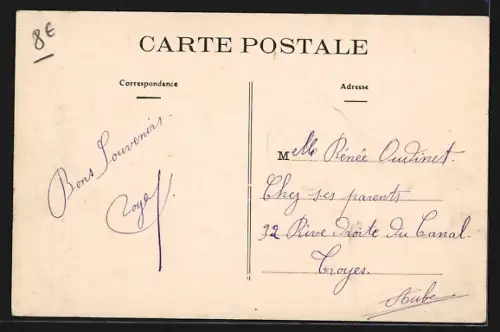 8€
CARTE POSTALE
Correspondance
Adresse
Bons Souvenirs.
Melle Rénée Oudinet.
Chez ses parents
32 Rive Droite du Canal.
Troyes.
Aube